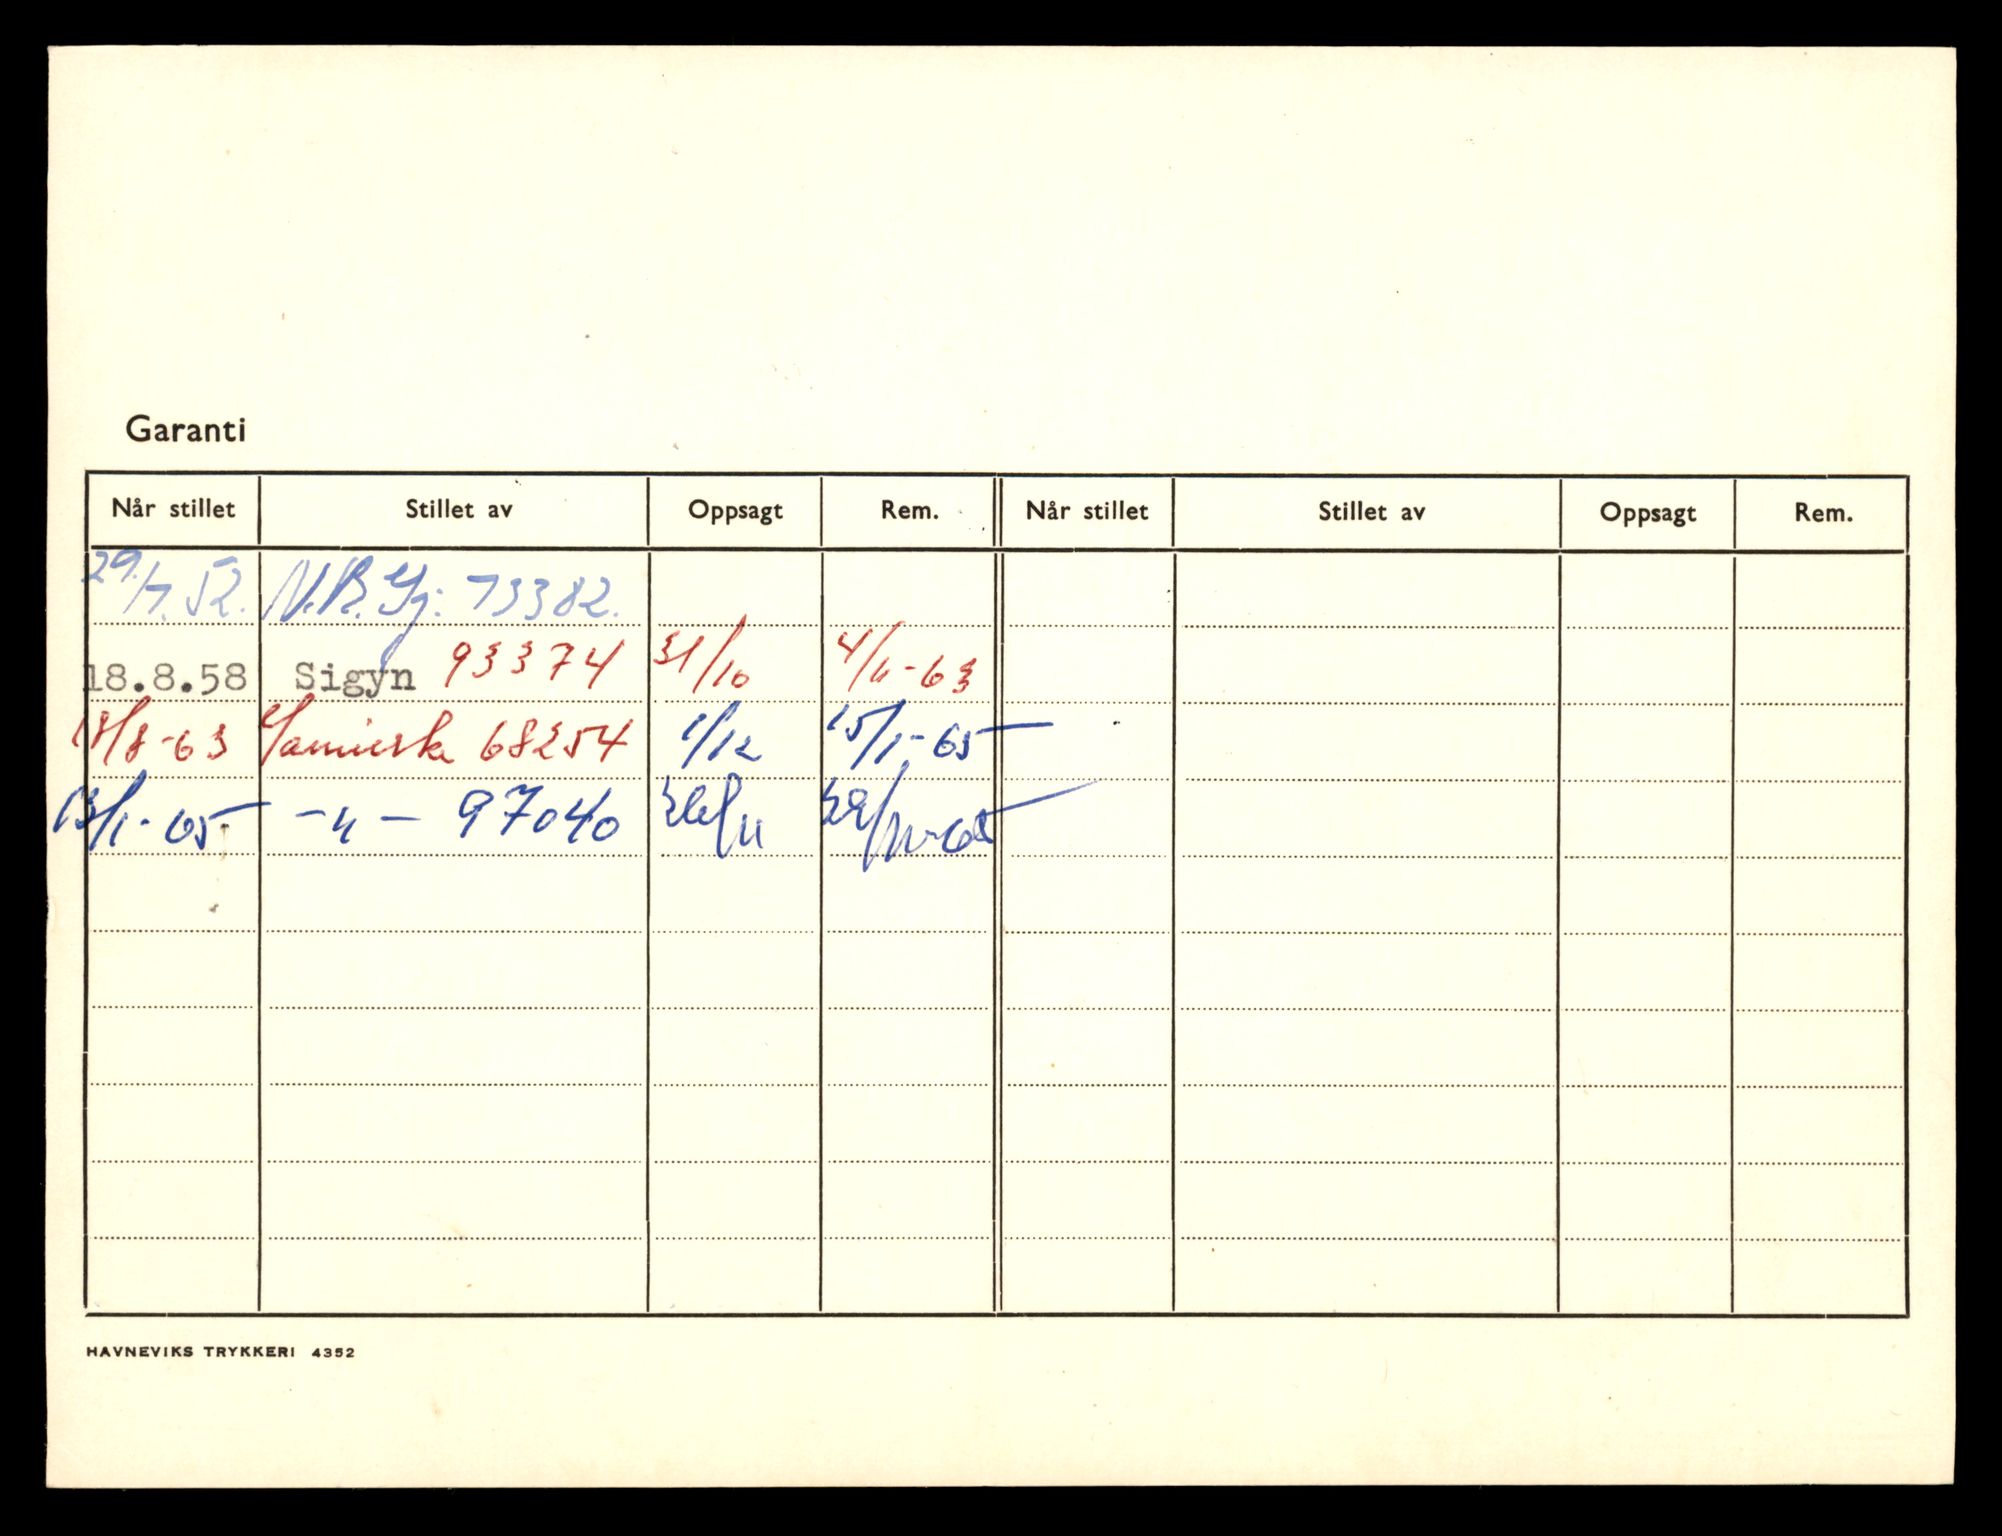 Garanti
Når stillet Stillet av Oppsagt Rem. Når stillet Stillet av Oppsagt Rem.
29./7.52. 73382.
18.8.58 Sigyn 93374 31/10 4/11-63
18/8-63 68254 1/12 15/1-65
13/1-65 -"- 97040 26/11 29/11-65
HAVNEVIKS TRYKKERI 4352